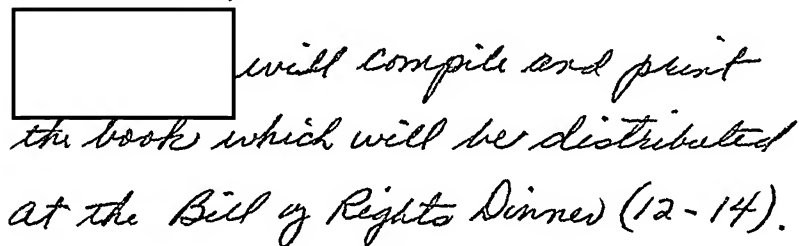 will compile and print
the book which will be distributed
at the Bill of Rights Dinner (12-14).